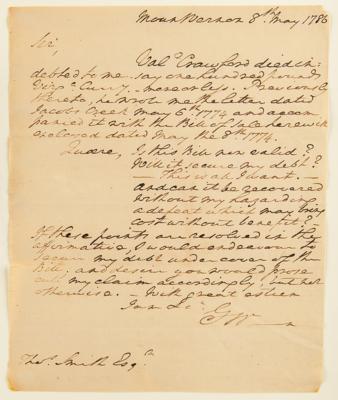 Mount Vernon 8th May 1786
Sir,
Valc. Crawford died in:
debted to me say one hundred pounds
Virga. Curry. – more or less. Previously
thereto, he wrote me the letter dated
Jacobs Creek May 6th 1774 and accom
panied it with the Bill of Sale herewith
enclosed dated May the 8th 1774.
Quære, Is this Bill now valid?
Will it secure my debt?
– this is all I want. –
and can it be recovered
without my hazarding
a defeat which may bring
cost without benefit?
If these points are resolved in the
affirmative, I would endeavour to
secure my debt under cover of the
Bill, and desire you would prose
cute my claim accordingly, but not
otherwise. – With great esteem
I am &c.
GW
Thos. Smith Esqr.